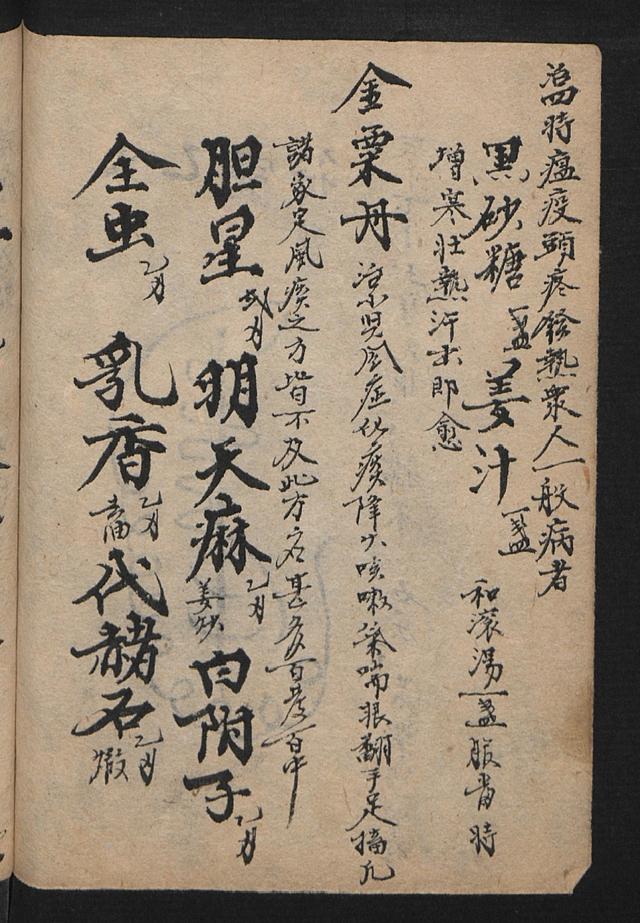 治四時瘟疫頭疼發熱衆人一般病者
黑砂糖一盞姜汁一盞和滚湯一盞服當時
增寒壮熱汗出即愈
金粟丹治小児風症化痰降火咳嗽氣喘眼翻手足搐凡
諸家定風痰之方皆不及此方名甚多百發百中
胆星弍 明天麻乙 姜炒 白附子乙
全虫乙 乳香乙 去油 代赭石乙 煅